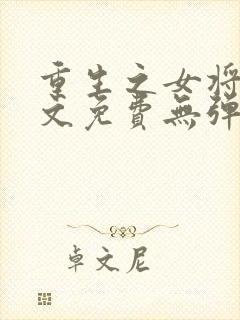 重生之女将
文免費無彈
卓文尼